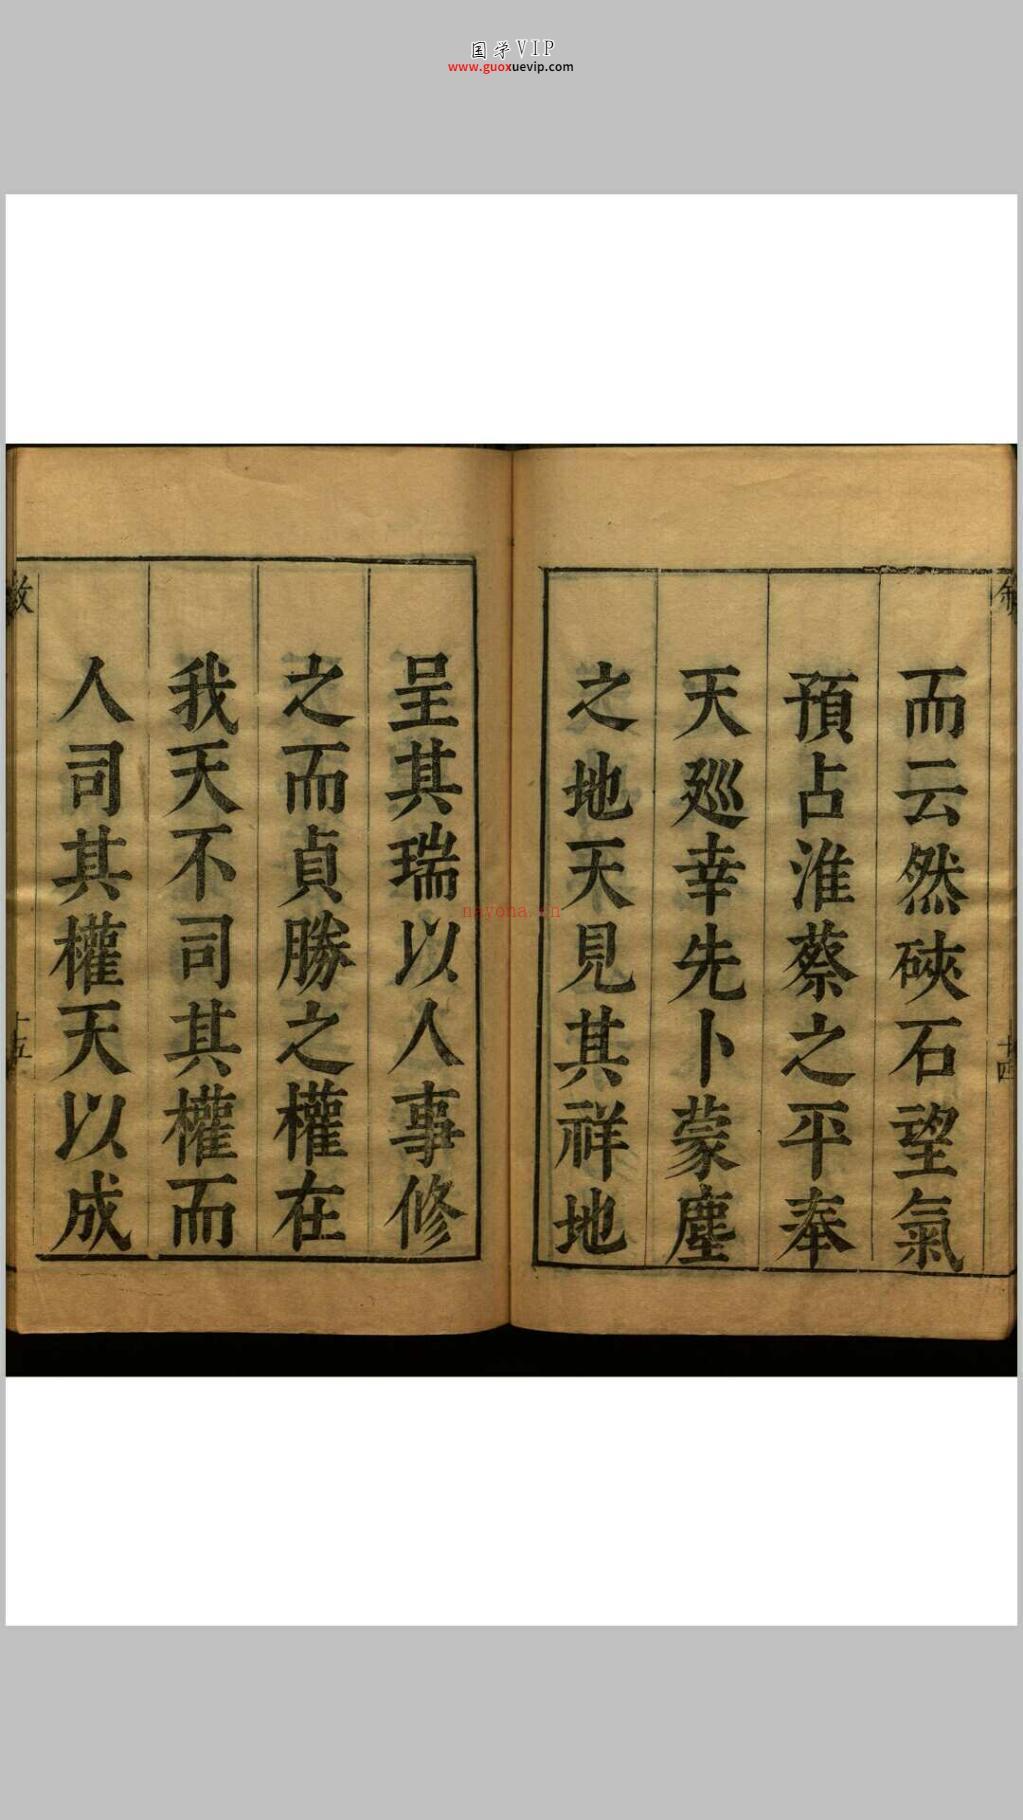 国学VIP
www.guoxuevip.com
而云然硤石望氣
預占淮蔡之平奉
天廵幸先卜蒙塵
之地天見其祥地
呈其瑞以人事修
之而貞勝之權在
我天不司其權而
人司其權天以成
十四
十五
nayona.cn